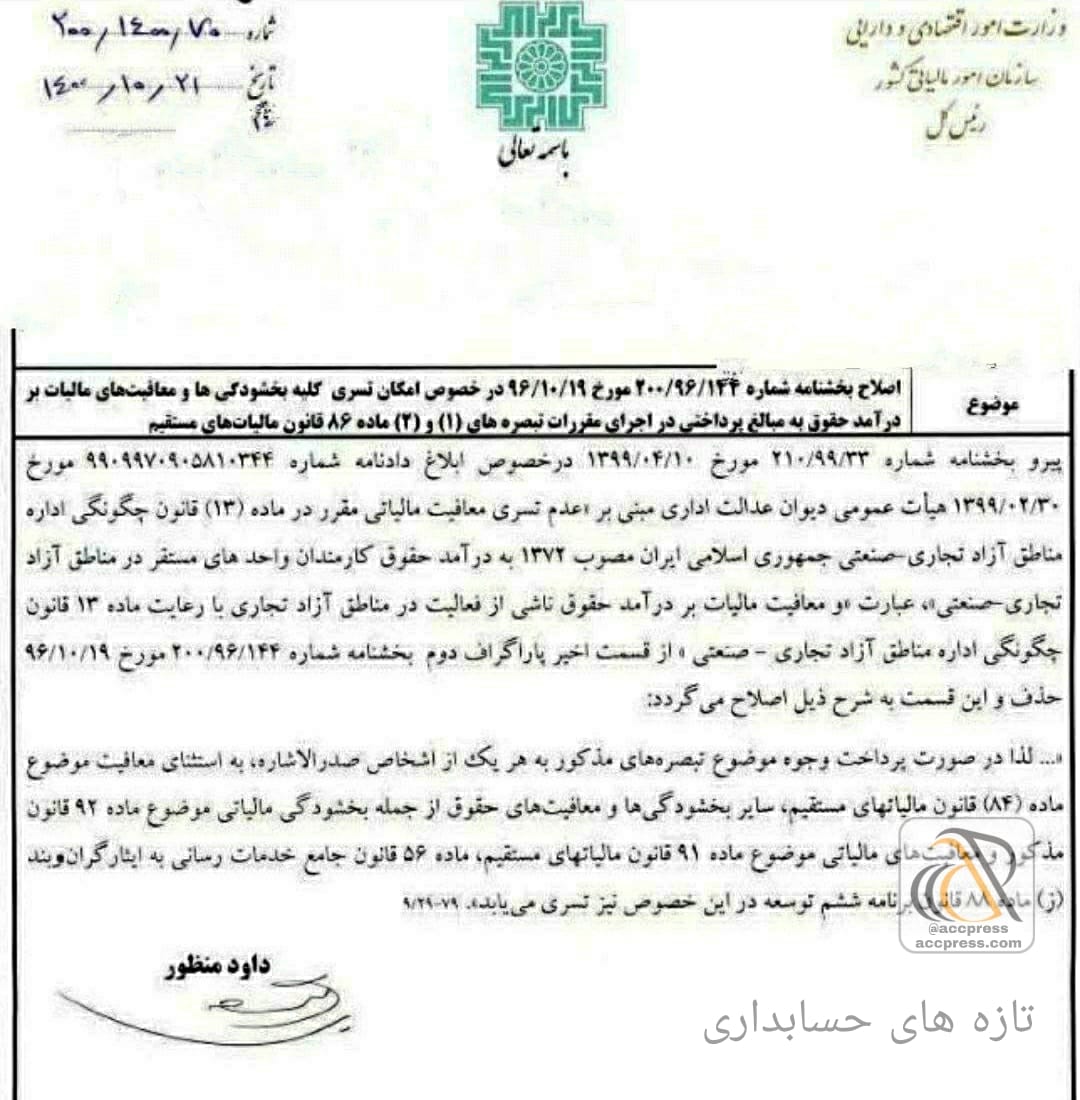 وزارت امور اقتصادی و دارایی
سازمان امور مالیاتی کشور
رئیس کل
باسمه تعالی
شماره ۲۰۰/۱۴۰۰/۷۰
تاریخ ۱۴۰۰/۱۰/۲۱
موضوع
اصلاح بخشنامه شماره ۲۰۰/۹۶/۱۴۴ مورخ ۹۶/۱۰/۱۹ در خصوص امکان تسری کلیه بخشودگی ها و معافیت‌های مالیات بر
درآمد حقوق به مبالغ پرداختی در اجرای مقررات تبصره های (۱) و (۲) ماده ۸۶ قانون مالیات‌های مستقیم
پیرو بخشنامه شماره ۲۱۰/۹۹/۳۳ مورخ ۱۳۹۹/۰۴/۱۰ درخصوص ابلاغ دادنامه شماره ۹۹۰۹۹۷۰۹۰۵۸۱۰۳۴۴ مورخ
۱۳۹۹/۰۲/۳۰ هیأت عمومی دیوان عدالت اداری مبنی بر «عدم تسری معافیت مالیاتی مقرر در ماده (۱۳) قانون چگونگی اداره
مناطق آزاد تجاری-صنعتی جمهوری اسلامی ایران مصوب ۱۳۷۲ به درآمد حقوق کارمندان واحد های مستقر در مناطق آزاد
تجاری-صنعتی»، عبارت «و معافیت مالیات بر درآمد حقوق ناشی از فعالیت در مناطق آزاد تجاری با رعایت ماده ۱۳ قانون
چگونگی اداره مناطق آزاد تجاری - صنعتی » از قسمت اخیر پاراگراف دوم بخشنامه شماره ۲۰۰/۹۶/۱۴۴ مورخ ۹۶/۱۰/۱۹
حذف و این قسمت به شرح ذیل اصلاح می گردد:
«... لذا در صورت پرداخت وجوه موضوع تبصره‌های مذکور به هر یک از اشخاص صدرالاشاره، به استثنای معافیت موضوع
ماده (۸۴) قانون مالیاتهای مستقیم، سایر بخشودگی‌ها و معافیت‌های حقوق از جمله بخشودگی مالیاتی موضوع ماده ۹۲ قانون
مذکور و معافیت‌های مالیاتی موضوع ماده ۹۱ قانون مالیاتهای مستقیم، ماده ۵۶ قانون جامع خدمات رسانی به ایثارگران و بند
(ز) ماده ۸۸ قانون برنامه ششم توسعه در این خصوص نیز تسری می‌یابد». ۹/۲۹-۷۹
داود منظور
@accpress
accpress.com
تازه های حسابداری